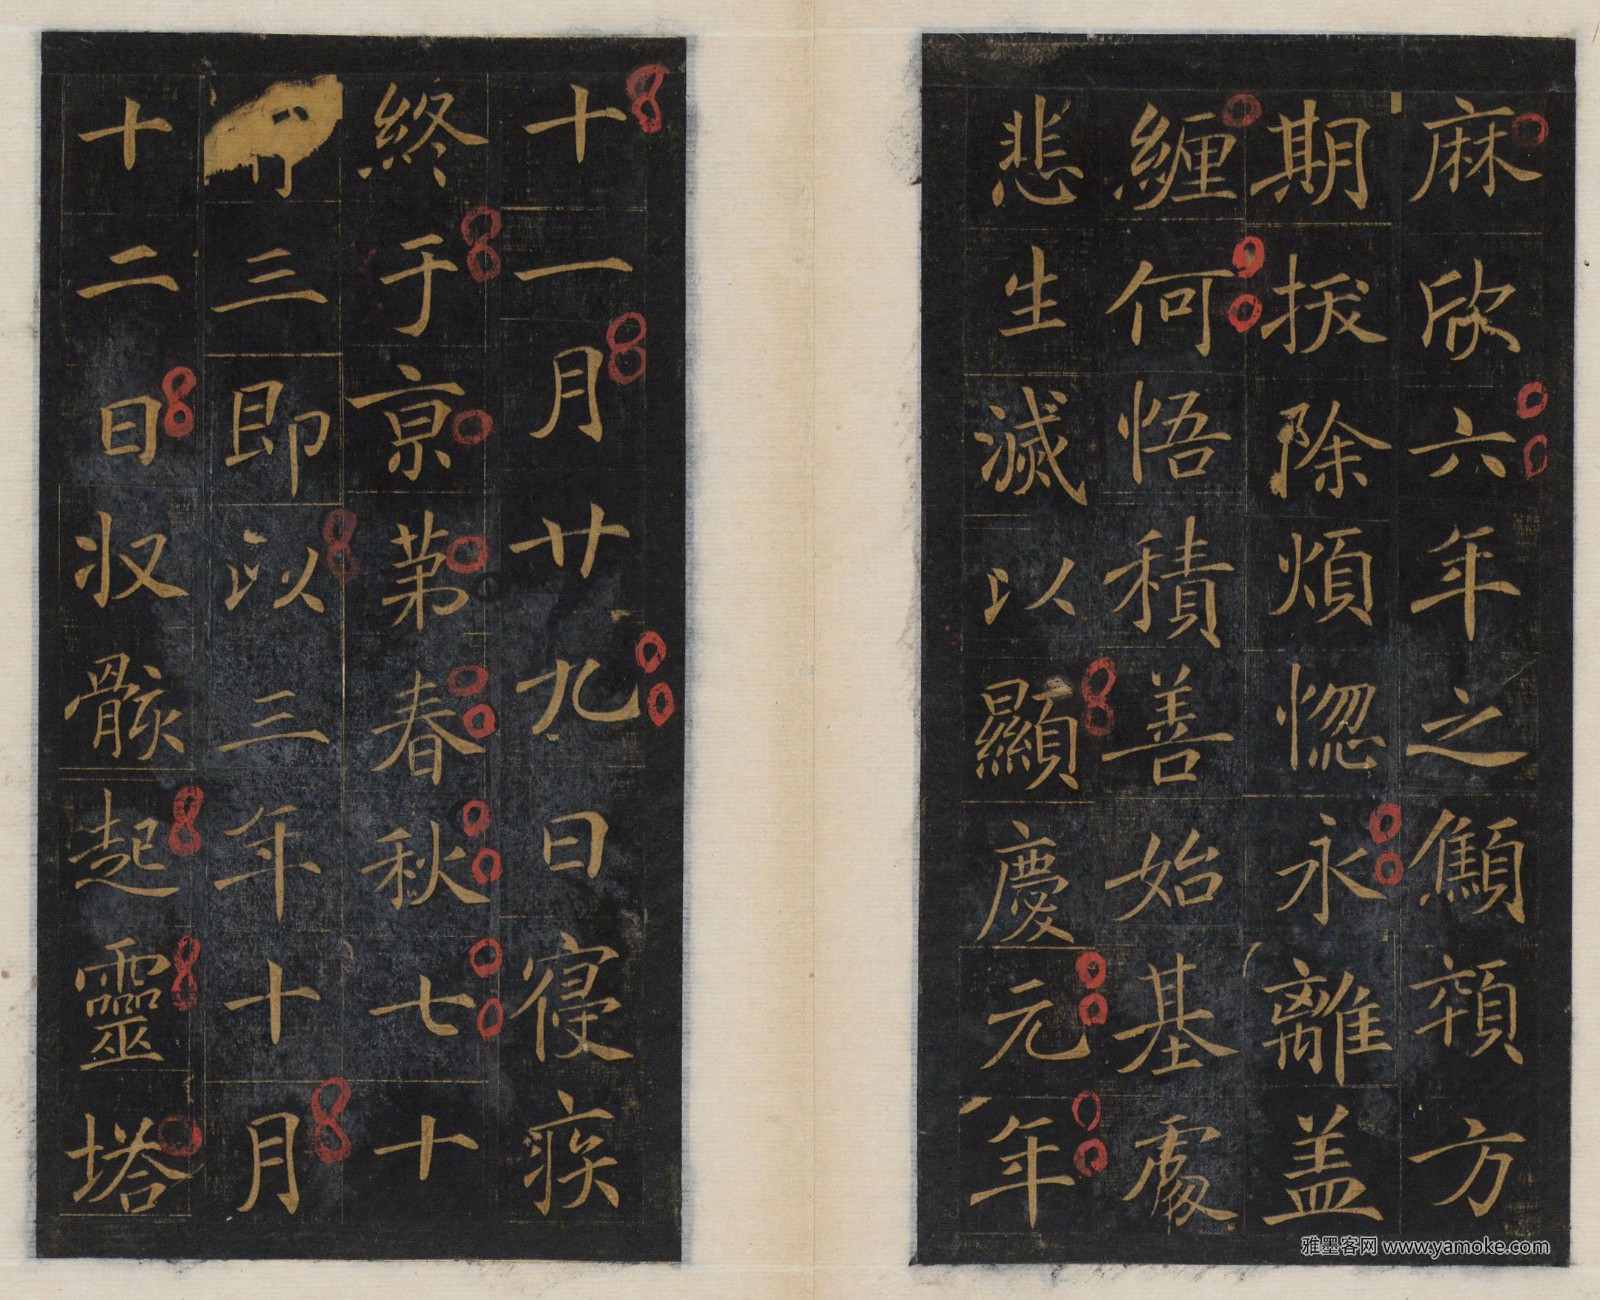 麻欣六年之雋頟方
期拔除煩惚永離盖
纏何悟積善始基處
悲生滅以顯慶元年
十一月廿九日寑疾
終于京苐春秋七十
三即以三年十月
十二日収骸起靈塔
雅墨客网 www.yamoke.com